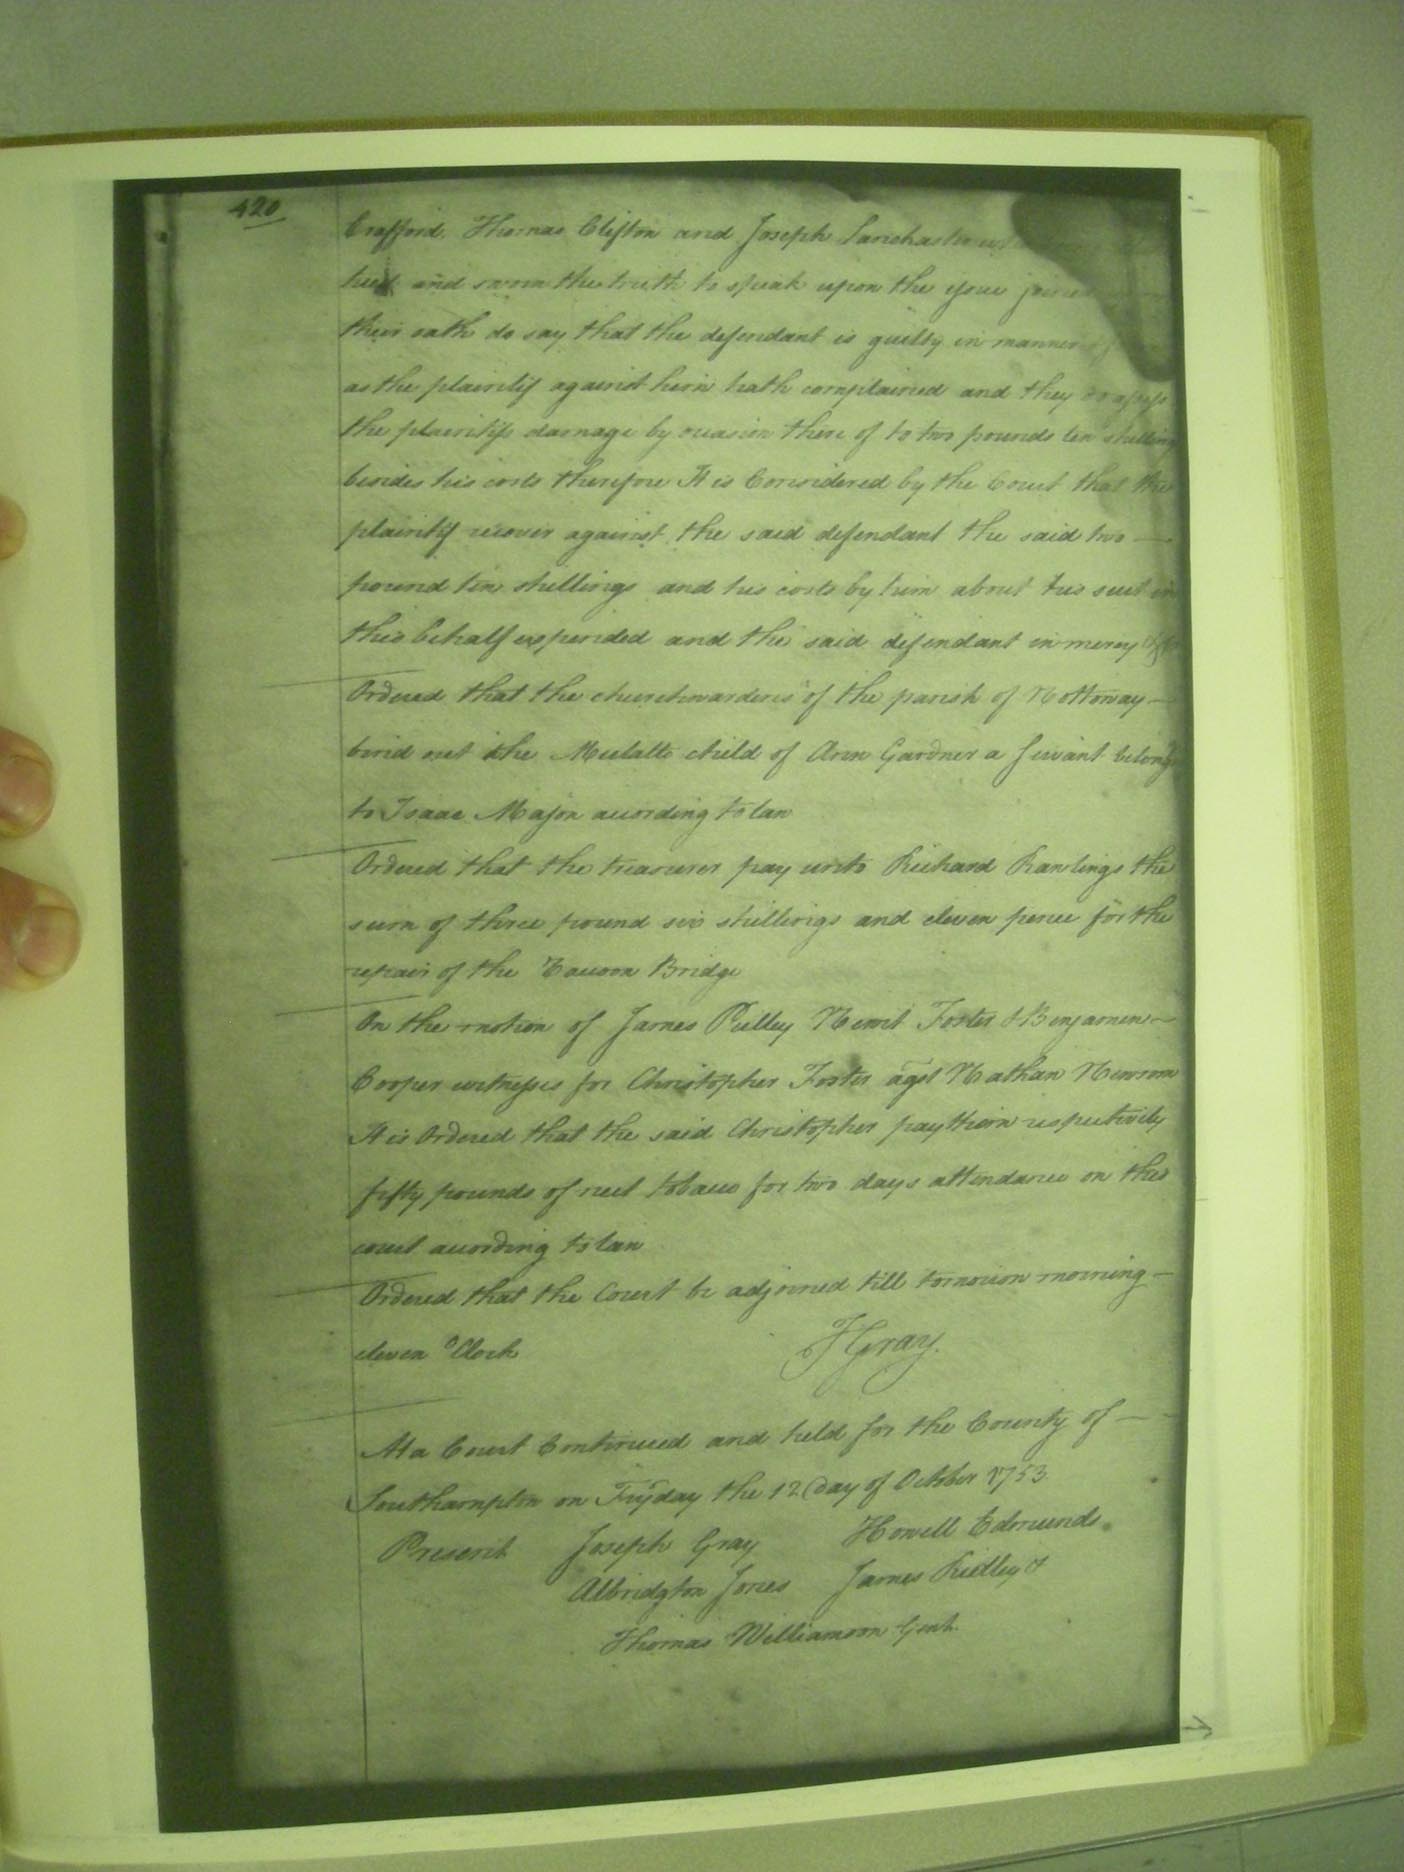 420
Crafford Thomas Clifton and Joseph Lanchaster
and sworn the truth to speak upon the issue joined
their oath do say that the defendant is guilty in manner
as the plaintif against him hath complained and they do assess
the plaintifs damage by ocasion there of to two pounds ten shillings
besides his costs therefore It is Considered by the Court that the
plaintif recover against the said defendant the said two
pound ten shillings and his costs by him about his suit in
this behalf expended and the said defendant in mercy &c
Ordered that the churchwardens of the parish of Nottoway
bind out the Mulatto child of Ann Gardner a servant belong
to Isaac Major acording to law
Ordered that the treasurer pay unto Richard Rawlings the
sum of three pound six shillings and eleven pence for the
repair of the Bridge
On the motion of James Foster & Benjamen
Cooper witnesses for Christopher Foster agst Nathan Newsom
It is Ordered that the said Christopher pay them respectively
fifty pounds of neet tobacco for two days attendance on this
court acording to law
Ordered that the Court be adjorned till tomorrow morning
eleven oClock JGray.
At a Court Continued and held for the County of
Southampton on Fryday the 12 day of October 1753
Present Joseph Gray Howell Edmunds
Albridgton Jones James Ridley &
Thomas Williamson Gent.